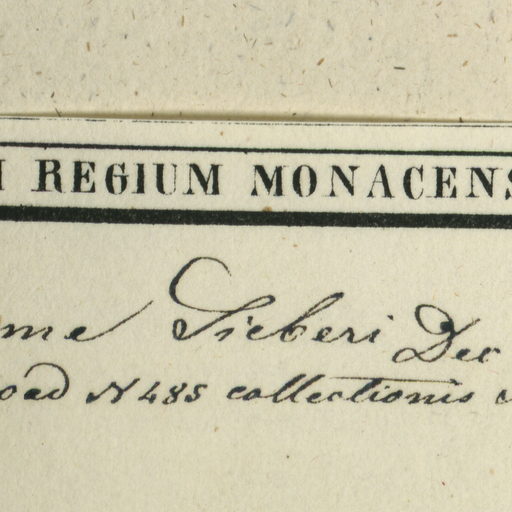 REGIUM MONACENS
me Sieberi Dec
oad N 485 collectionis